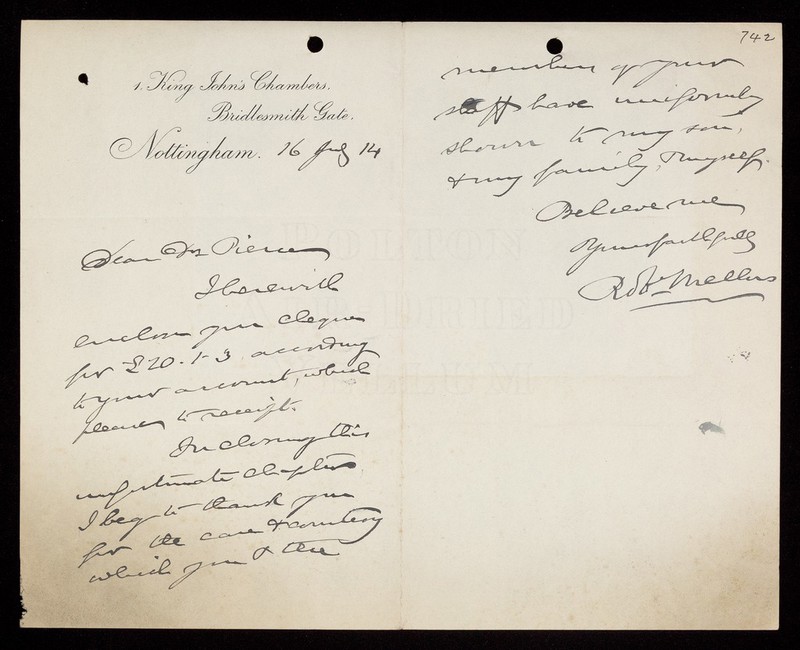 1. King John's Chambers.
Bridlesmith Gate.
Nottingham. 16 July 14
Dear Dr Pierce
I herewith
enclose you cheque
for £20.1-3 according
to your account, which
please to receipt.
In closing this
unfortunate chapter
I beg to thank you
for the care & courtesy
which you & the
742
members of your
staff have uniformly
shown to my son,
& my family, & myself.
Believe me
Yours faithfully
Robt Mellors
TOLTON
DRIED
VELLUM